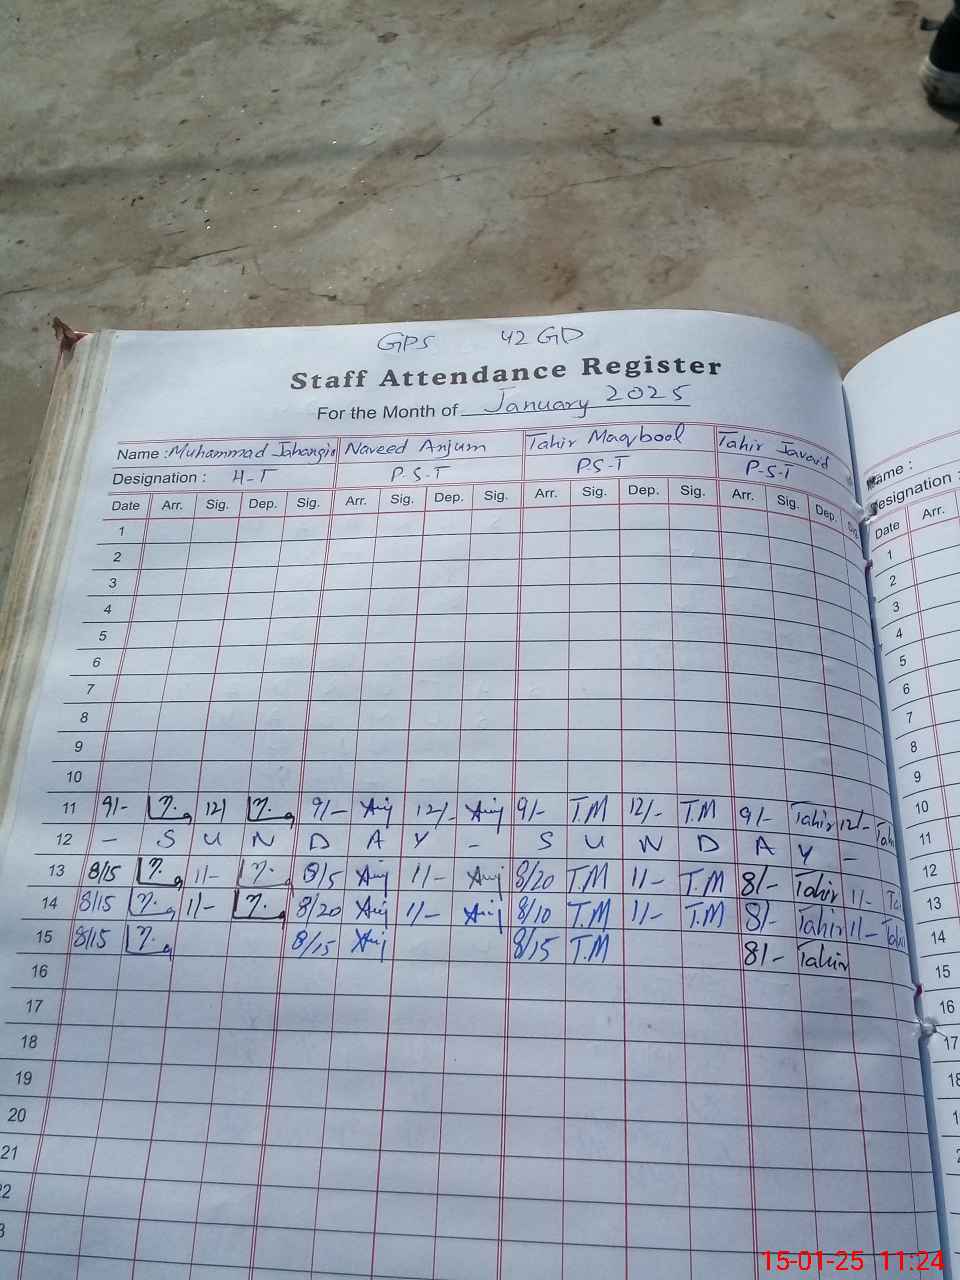 GPS 42 GD
Staff Attendance Register
For the Month of January 2025
Name : Muhammad Jahangir Naveed Anjum Tahir Maqbool Tahir Javaid
Designation : H-T P.S.T P.S-T P.S-T
Date Arr. Sig. Dep. Sig. Arr. Sig. Dep. Sig. Arr. Sig. Dep. Sig. Arr. Sig. Dep. Sig.
1
2
3
4
5
6
7
8
9
10
11 9/- 12/ 9/- 12/- 9/- T.M 12/- T.M 9/- Tahir 12/- Tahi
12 – S U N D A Y – S U N D A Y –
13 8/15 11- 8/15 11- 8/20 T.M 11- T.M 8/- Tahir 11- Ta
14 8/15 11- 8/20 11- 8/10 T.M 11- T.M 8/- Tahir 11- Tahi
15 8/15 8/15 8/15 T.M 8/- Tahir
16
17
18
19
20
21
22
3
Name :
esignation :
Date Arr.
1
2
3
4
5
6
7
8
9
10
11
12
13
14
15
16
17
18
15-01-25 11:24